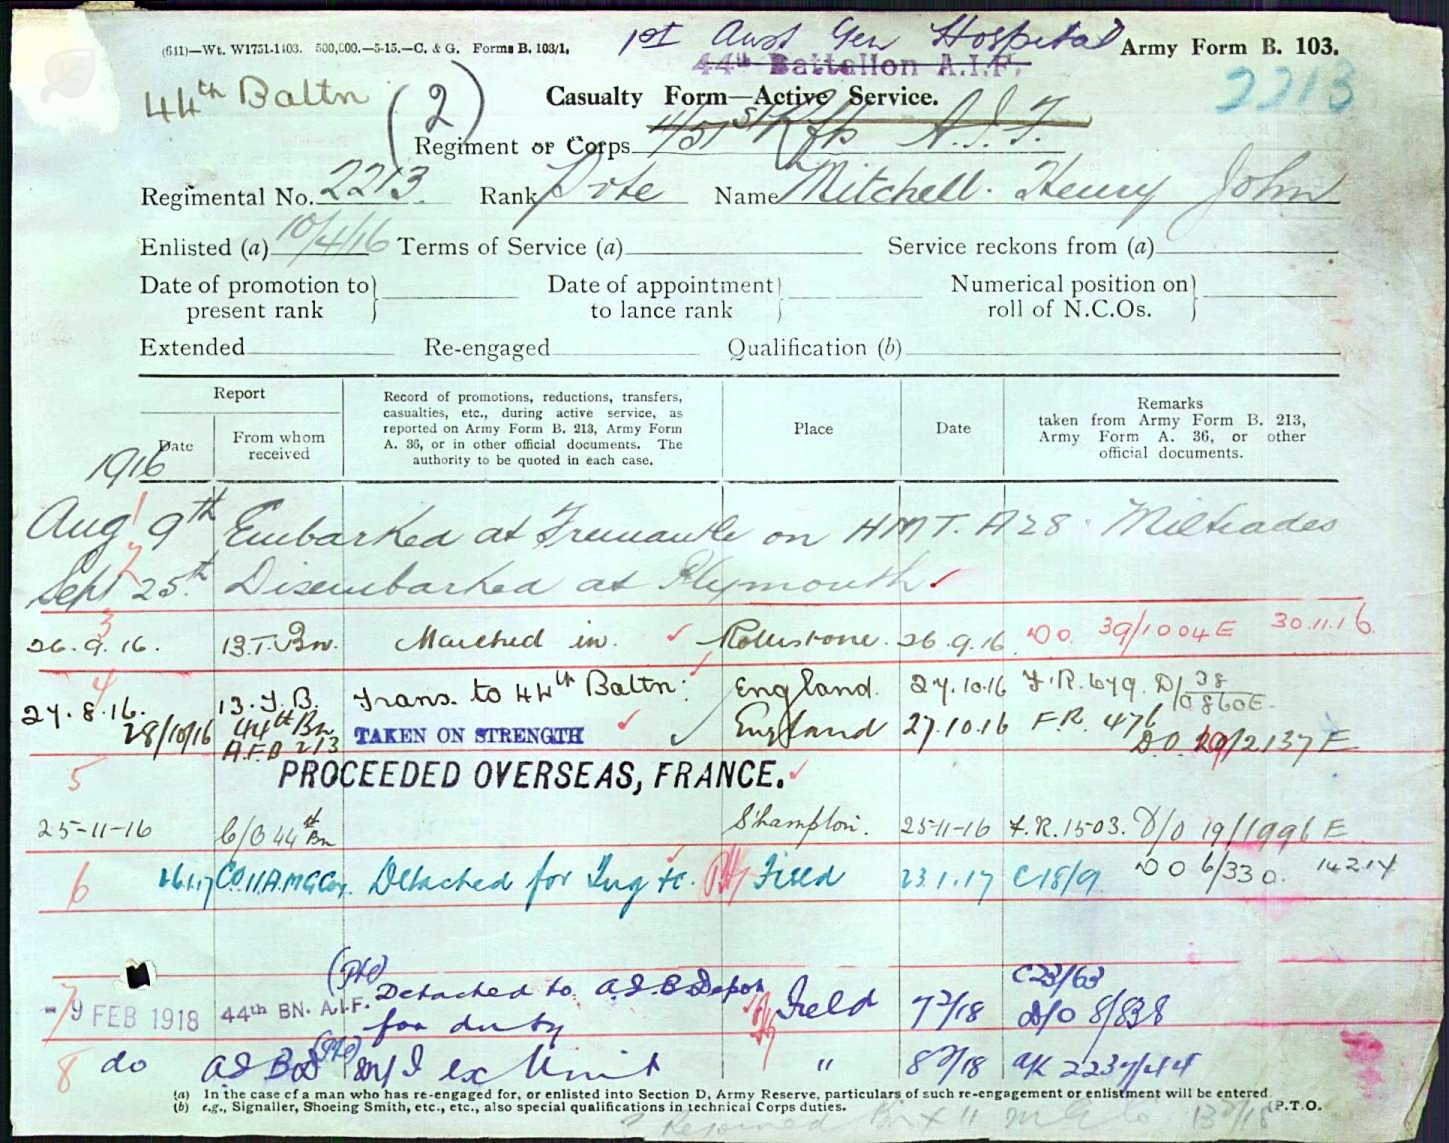 (611)—Wt. W1751-1103. 500,000.—5-15.—C. & G. Forms B. 103/1.
1st Aust Gen Hospital
Army Form B. 103.
44th Battalion A.I.F.
2213
44th Baltn (2)
Casualty Form—Active Service.
Regiment or Corps A.I.F.
Regimental No. 2213 Rank Pvte Name Mitchell. Henry John
Enlisted (a) 10/4/16 Terms of Service (a) Service reckons from (a)
Date of promotion to present rank } Date of appointment to lance rank } Numerical position on roll of N.C.Os. }
Extended Re-engaged Qualification (b)
Report
Date
From whom received
Record of promotions, reductions, transfers, casualties, etc., during active service, as reported on Army Form B. 213, Army Form A. 36, or in other official documents. The authority to be quoted in each case.
Place
Date
Remarks taken from Army Form B. 213, Army Form A. 36, or other official documents.
1916
1 Aug 9th Embarked at Fremantle on HMT. A28. Miltiades
2 Sept 25th Disembarked at Plymouth
3 26.9.16. 13.T.Bn. Marched in. Rollestone. 26.9.16 DO 39/1004E 30.11.16
4 27.8.16. 13.T.B. Trans. to 44th Baltn. England. 27.10.16 F.R. 679. D/ 38/0860E.
28/10/16 44th Bn A.F.B 213 TAKEN ON STRENGTH England 27.10.16 F.R. 476 D.O. 19/2137E
5 PROCEEDED OVERSEAS, FRANCE.
25-11-16 C/O 44th Bn S'hampton. 25-11-16 F.R. 1503. D/O 19/1996E
6 26.1.17 CO.11.A.M.G.Coy. Detached for Field 23.1.17 C18/9 DO 6/330. 14.2.17
7 -9 FEB 1918 44th BN. A.I.F. (Pte) Detached to A.I.B. Depot for duty Field 7/2/18 C23/63 D/O 8/838
8 do A I B D (Pte) M/I ex Unit " 8/2/18 A/K 2237/44
(a) In the case of a man who has re-engaged for, or enlisted into Section D, Army Reserve, particulars of such re-engagement or enlistment will be entered
(b) e.g., Signaller, Shoeing Smith, etc., etc., also special qualifications in technical Corps duties. [P.T.O.
Rejoined